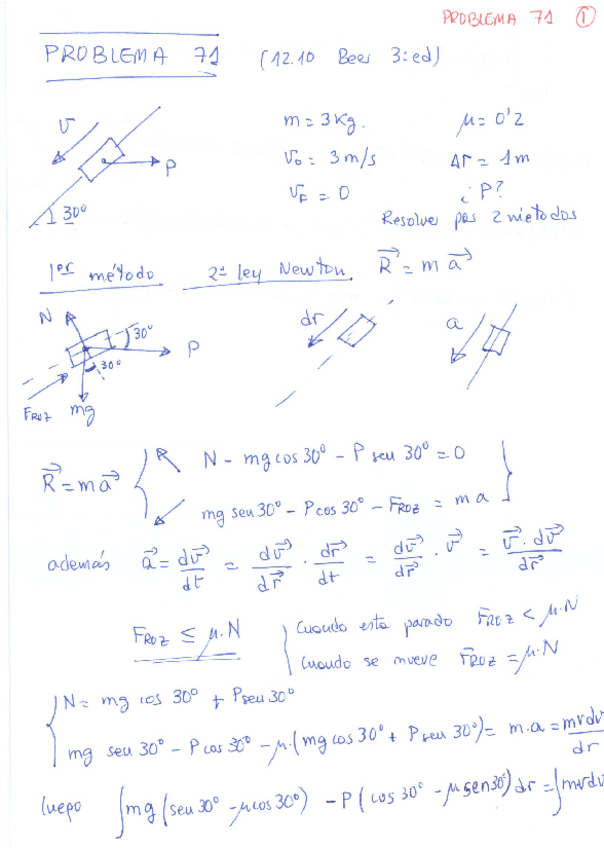 PROBLEMA 71 ①
PROBLEMA 71 (12.10 Beer 3ª ed)
m = 3 Kg. μ = 0'2
v₀ = 3 m/s Δr = 1 m
v_F = 0 ¿P?
Resolver por 2 métodos
v P 30º
1er método 2ª ley Newton. R⃗ = m a⃗
N 30º P 30º F_ROZ mg
dr a
R⃗ = m a⃗
N - mg cos 30º - P seu 30º = 0
mg seu 30º - P cos 30º - F_ROZ = m a
además a⃗ = dv⃗/dt = dv⃗/dr⃗ · dr⃗/dt = dv⃗/dr⃗ · v⃗ = v⃗ · dv⃗/dr⃗
F_ROZ ≤ μ·N
Cuando está parado F_ROZ < μ·N
Cuando se mueve F_ROZ = μ·N
N = mg cos 30º + P seu 30º
mg seu 30º - P cos 30º - μ·(mg cos 30º + P seu 30º) = m·a = mvdv/dr
luego ∫mg (seu 30º - μcos 30º) - P (cos 30º - μ sen 30º) dr = ∫mvdv